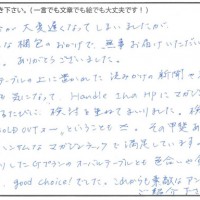 き下さい。(一言でも文章でも絵でも大丈夫です!)
が大変遅くなってしまいましたが、
な梱包のおかげで、無事お届けいただい
ありがとうございました。
テーブルの上に置かしした、読みかけの新聞や
も気になって Handle さんのHPにマガジン
るたびに、検討を重ねてまいりましたが、
SOLD OUTヨ〜、ということも…。その甲斐あ
ハンサムなマガジンラックで満足しています。
りしたGプランのオーバルテーブルとも色合いや
good choice! でした。これからも素敵なアン
ご紹介下さ